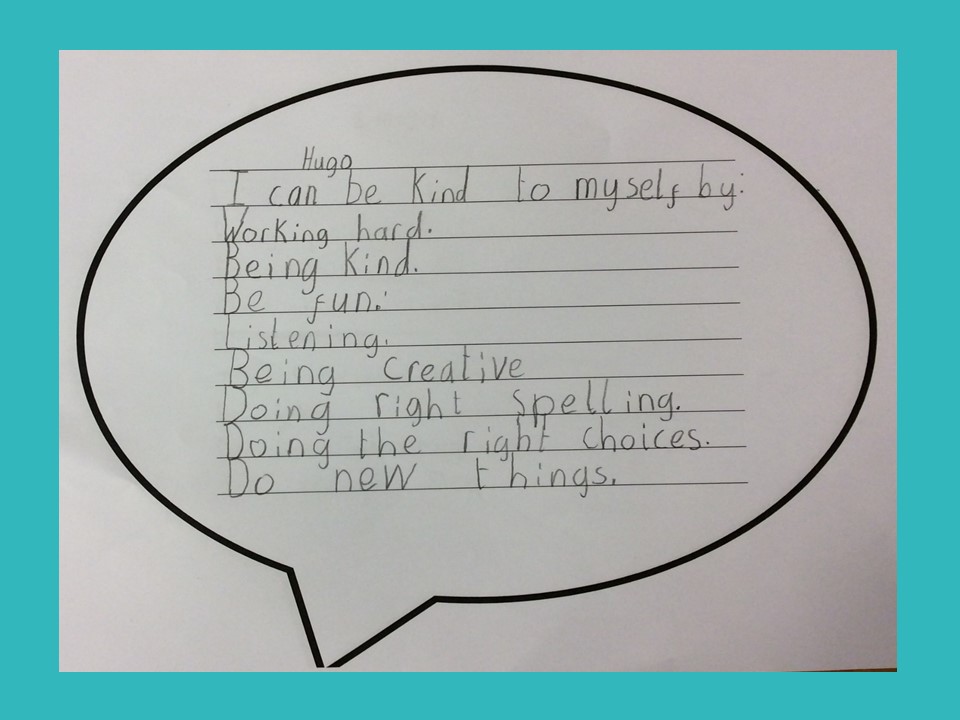 Hugo
I can be kind to myself by:
Working hard.
Being kind.
Be fun.
Listening.
Being creative
Doing right spelling.
Doing the right choices.
Do new things.